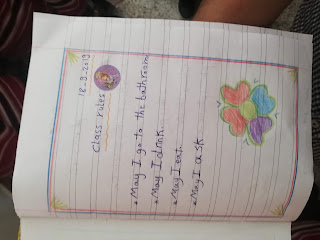 18-9-2019
Class rules
• May I go to the bathroom
• May I drink.
• May I eat.
• May I ask